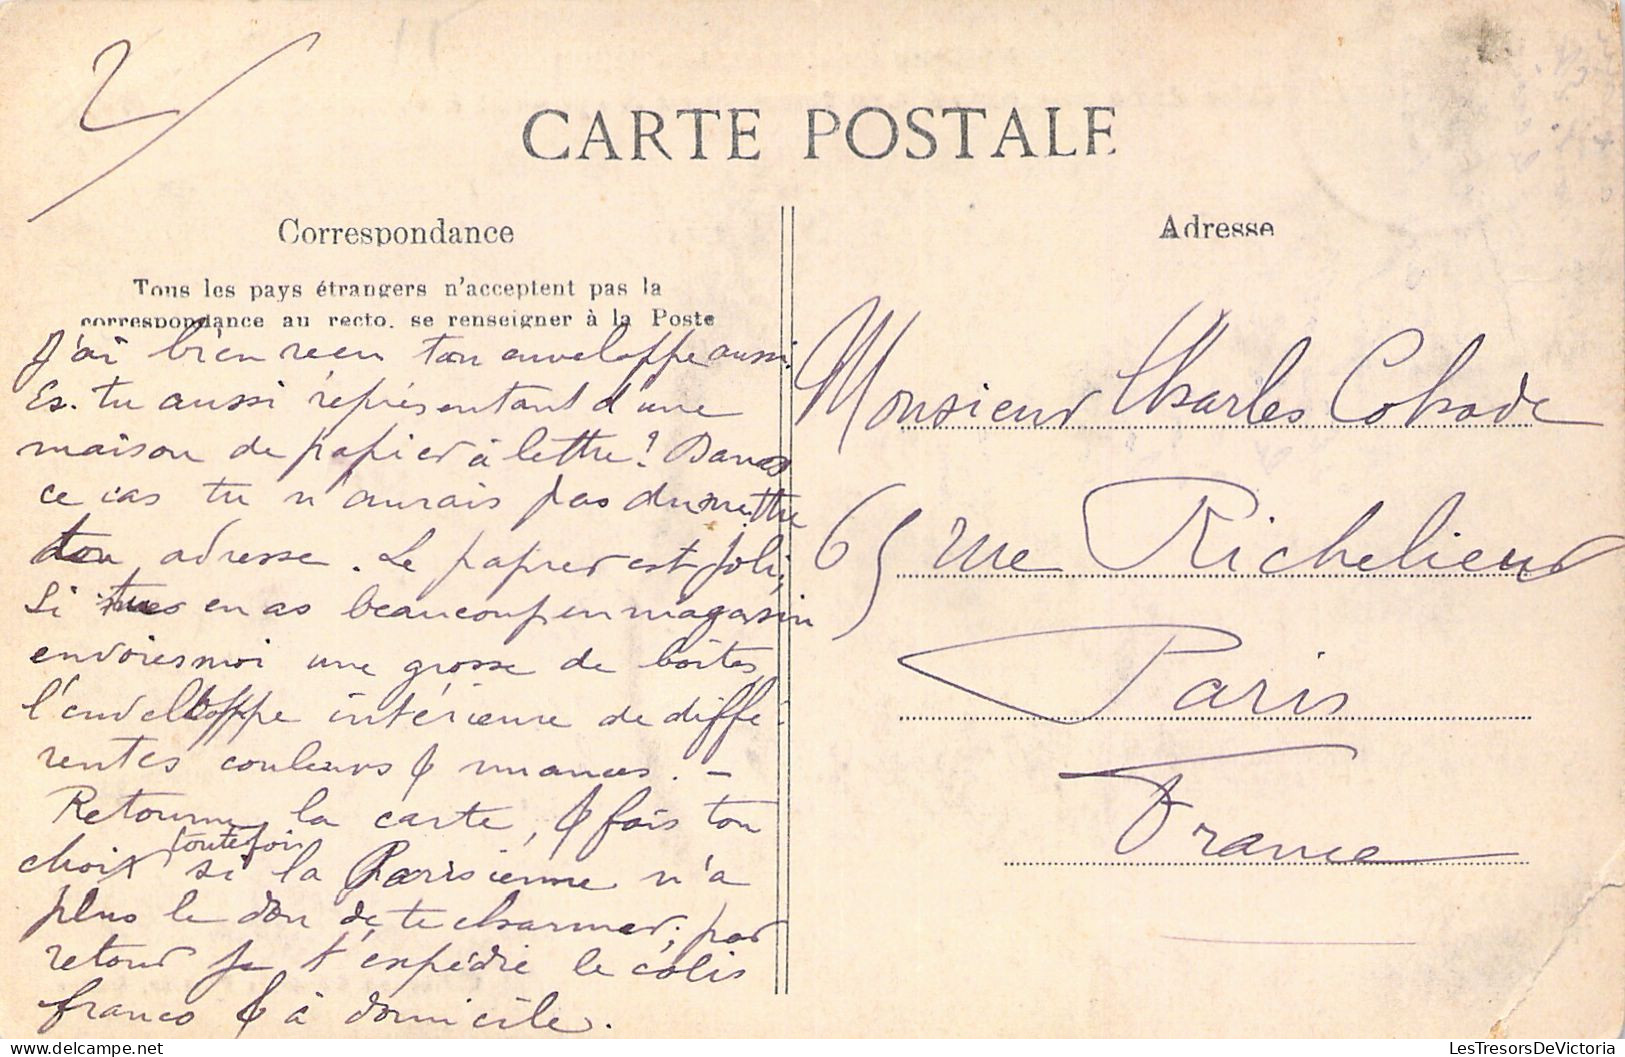 2/
CARTE POSTALE
Correspondance
Tous les pays étrangers n'acceptent pas la
correspondance au recto, se renseigner à la Poste
J'ai bien reçu ton enveloppe aussi.
Es-tu aussi représentant d'une
maison de papier à lettre? Dans
ce cas tu n'aurais pas du mettre
ton adresse. Le papier est joli,
Si tu en as beaucoup en magasin
envoies moi une grosse de boîtes,
l'enveloppe intérieure de diffé-
rentes couleurs & nuances. -
Retourne la carte, & fais ton
choix toutefois si la Parisienne n'a
plus le don de te charmer; par
retour je t'expédie le colis
franco & à domicile.
Adresse
Monsieur Charles
65 rue Richelieu
Paris
France
LesTresorsDeVictoria